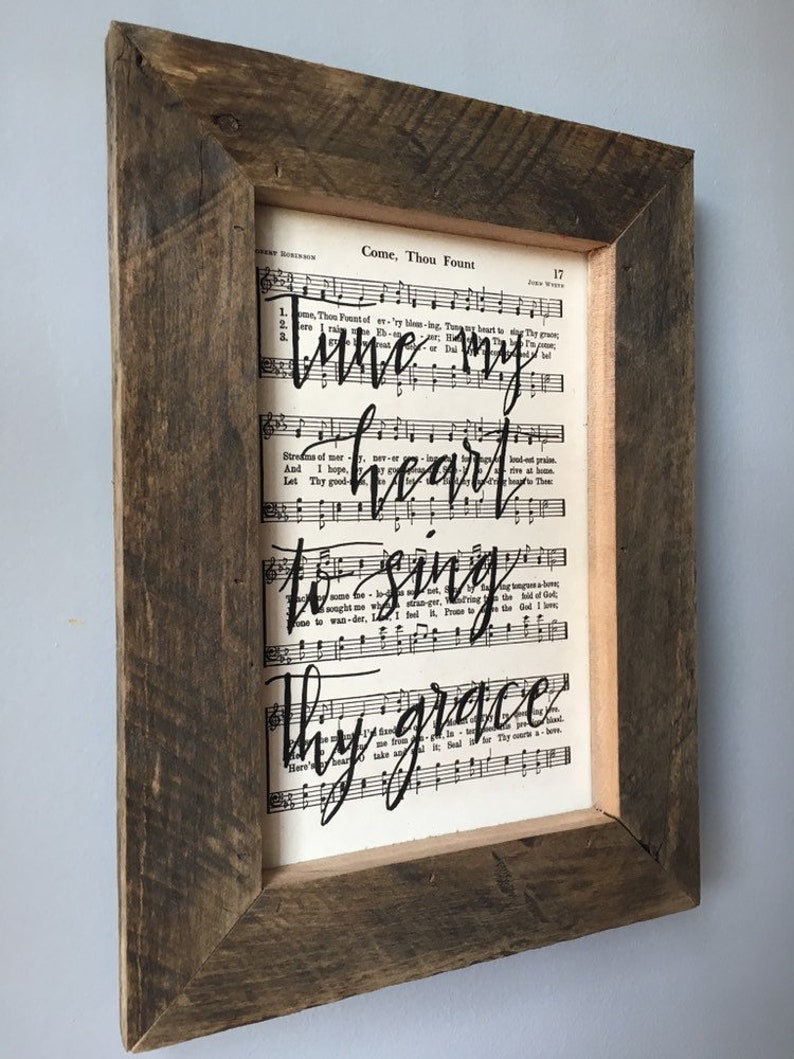 Come, Thou Fount
17
OBERT ROBINSON
JOHN WYETH
Tune my
heart
to sing
thy grace
1. Come, Thou Fount of ev-'ry bless-ing, Tune my heart to sing Thy grace;
2. Here I raise mine Eb-en-ezer; Thy help I'm come;
3. grace how great debt-or to be!
Streams of mer-cy, nev-er ceas-ing, Call for songs of loud-est praise.
And I hope, by Thy good pleas-ure, Safe-ly to ar-rive at home.
Let Thy good-ness, like a fet-ter, Bind my wand'ring heart to Thee:
Teach me some me-lo-dious son-net, Sung by flaming tongues a-bove;
sought me when a stran-ger, Wand'ring from the fold of God;
Prone to wan-der, Lord, I feel it, Prone to leave the God I love;
the mount I'm fixed Mount of Thy re-deem-ing love.
me from dan-ger, In-ter-posed His pre-cious blood.
Here's my heart, O take and seal it; Seal it for Thy courts a-bove.